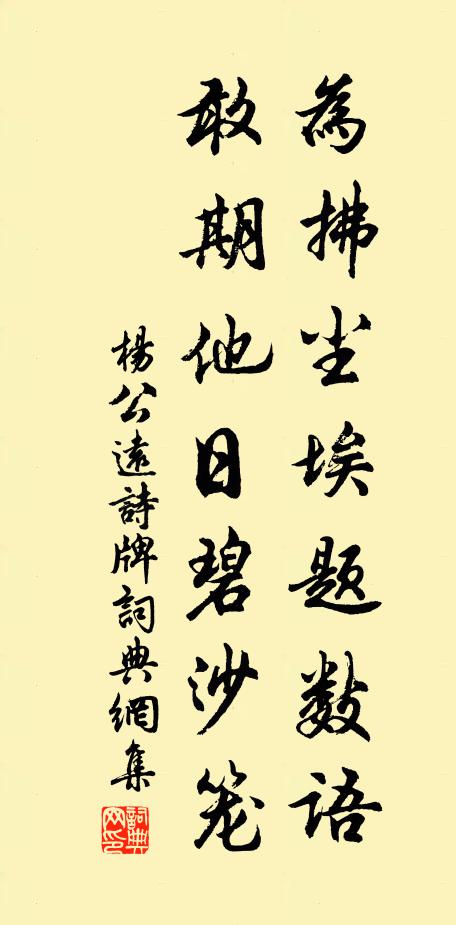 為拂尘埃題数語
敢期他日碧沙笼
楊公遠詩牌詞典網集
詞典网印